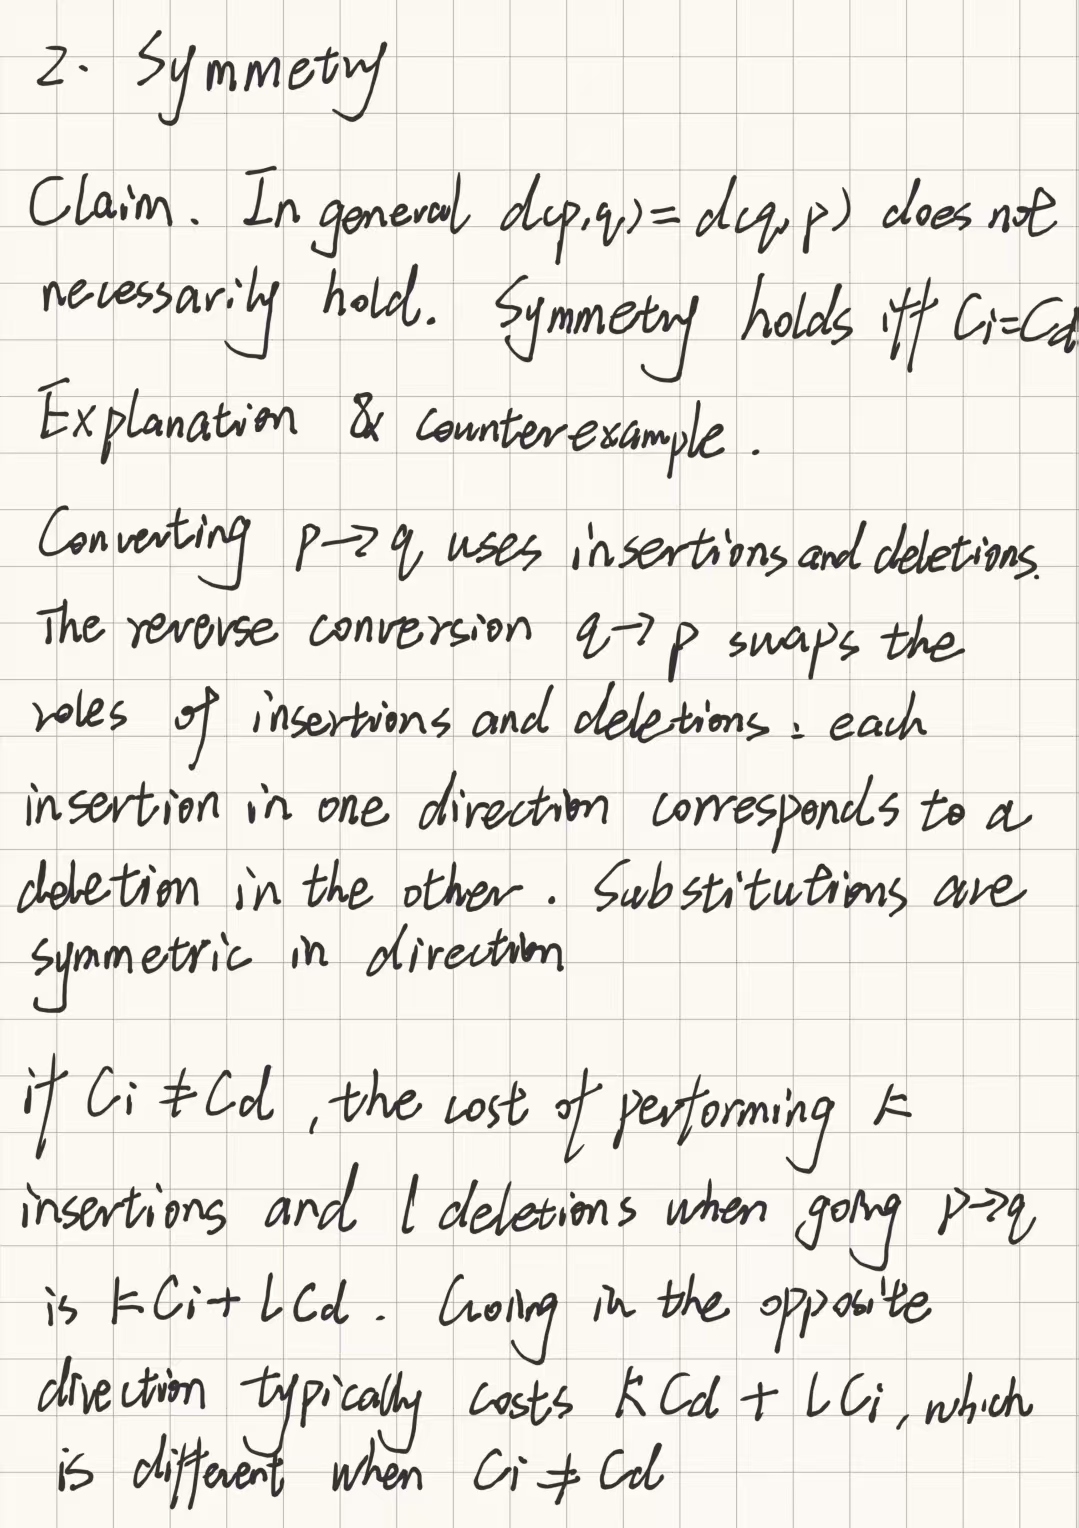 2. Symmetry
Claim. In general d(p,q) = d(q,p) does not
necessarily hold. Symmetry holds iff Ci=Cd
Explanation & counterexample.
Converting p→q uses insertions and deletions.
The reverse conversion q→p swaps the
roles of insertions and deletions: each
insertion in one direction corresponds to a
deletion in the other. Substitutions are
symmetric in direction
if Ci ≠ Cd, the cost of performing k
insertions and l deletions when going p→q
is kCi + LCd. Going in the opposite
direction typically costs kCd + LCi, which
is different when Ci ≠ Cd